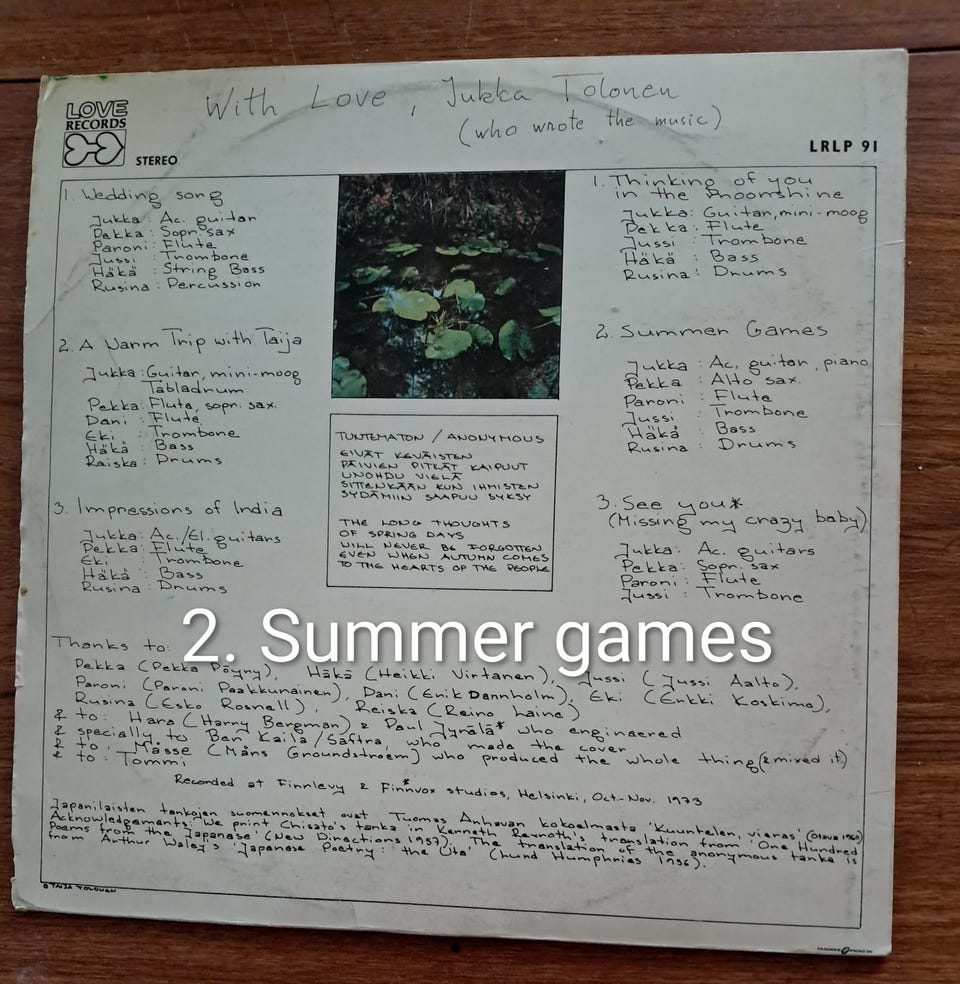 With Love, Jukka Tolonen
(who wrote the music)
LOVE
RECORDS
STEREO
LRLP 91
1. Wedding song
Jukka: Ac. guitar
Pekka: Sopr. sax
Paroni: Flute
Jussi: Trombone
Häkä: String Bass
Rusina: Percussion
2. A Warm Trip with Taija
Jukka: Guitar, mini-moog
Tabladrum
Pekka: Flute, sopr. sax.
Dani: Flute
Eki: Trombone
Häkä: Bass
Reiska: Drums
3. Impressions of India
Jukka: Ac./El. guitars
Pekka: Flute
Eki: Trombone
Häkä: Bass
Rusina: Drums
TUNTEMATON / ANONYMOUS
EIVÄT KEVÄISTEN
PÄIVIEN PITKÄT KAIPUUT
UNOHDU VIELÄ
SITTENKÄÄN KUN IHMISTEN
SYDÄMIIN SAAPUU SYKSY
THE LONG THOUGHTS
OF SPRING DAYS
WILL NEVER BE FORGOTTEN
EVEN WHEN AUTUMN COMES
TO THE HEARTS OF THE PEOPLE
1. Thinking of you
in the Moonshine
Jukka: Guitar, mini-moog
Pekka: Flute
Jussi: Trombone
Häkä: Bass
Rusina: Drums
2. Summer Games
Jukka: Ac. guitar, piano
Pekka: Alto sax.
Paroni: Flute
Jussi: Trombone
Häkä: Bass
Rusina: Drums
3. See you*
(Missing my crazy baby)
Jukka: Ac. guitars
Pekka: Sopr. sax
Paroni: Flute
Jussi: Trombone
2. Summer games
Thanks to:
Pekka (Pekka Pöyry), Häkä (Heikki Virtanen), Jussi (Jussi Aalto),
Paroni (Paroni Paakkunainen), Dani (Erik Dannholm), Eki (Erkki Koskimo),
Rusina (Esko Rosnell), Reiska (Reino Laine)
& to: Hara (Harry Bergman) & Paul Jyrälä* who engineered
& specially to Ben Kaila/Säftra, who made the cover
& to: Måsse (Måns Groundstroem) who produced the whole thing (& mixed it)
& to: Tommi
Recorded at Finnlevy & Finnvox* studios, Helsinki, Oct.-Nov. 1973
Japanilaisten tankojen suomennokset ovat Tuomas Anhavan kokoelmasta 'Kuuntelen, vieras' (Otava 1960)
Acknowledgements: We print Chisato's tanka in Kenneth Rexroth's translation from 'One Hundred
Poems from the Japanese' (New Directions 1957). The translation of the anonymous tanka is
from Arthur Waley's 'Japanese Poetry: the Uta' (Lund Humphries 1956).
© TAIJA TOLONEN